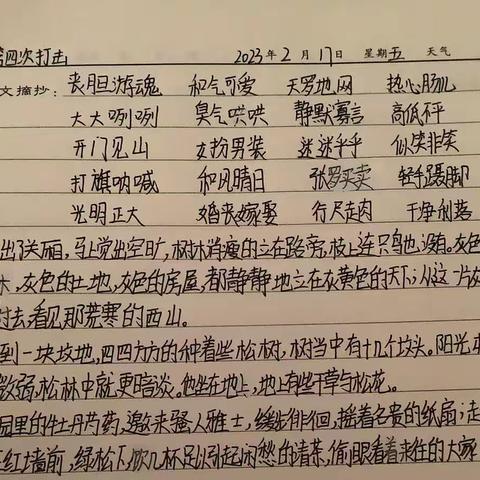 第四次打击 2023年2月17日 星期五 天气
文摘抄: 丧胆游魂 和气可爱 天罗地网 热心肠儿
大大咧咧 臭气哄哄 静默寡言 高低不平
开门见山 女扮男装 迷迷乎乎 似笑非笑
打旗呐喊 和风晴日 张罗买卖 轻手蹑脚
光明正大 婚丧嫁娶 行尸走肉 干净利落
出了关厢,马上觉出空旷,树木消瘦的立在路旁,枝上连只鸟也没有。灰色
木,灰色的土地,灰色的房屋,都静静地立在灰黄色的天下;从这一片灰
过去,看见那荒寒的西山。
到一块坟地,四四方方的种着些松树,树当中有十几个坟头。阳光本
微弱,松林中就更暗淡。他坐在地上,地上有些干草与松花。
园里的牡丹芍药,邀来骚人雅士,缓步徘徊,摇着名贵的纸扇;走
红墙前,绿松下,饮几杯足以引起闲愁的清茶,偷眼看着来往的大家